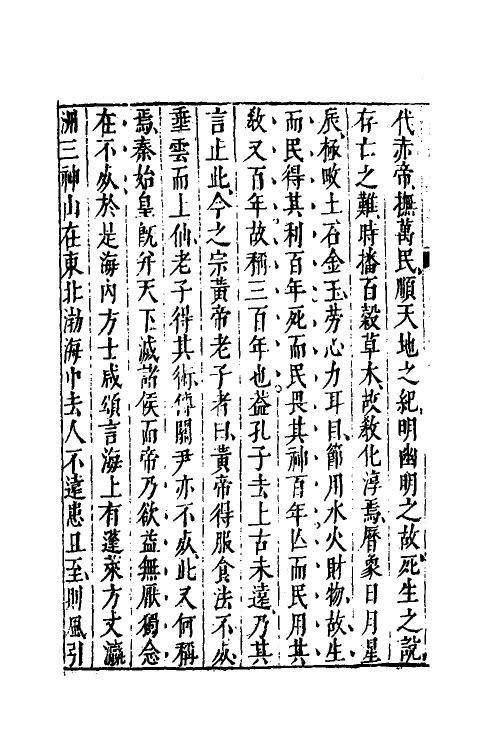 代赤帝撫萬民順天地之紀明幽明之故死生之說
存亡之難時播百穀草木故敎化淳焉曆象日月星
辰極畋土石金玉芳心力耳目節用水火財物故生
而民得其利百年死而民畏其神百年亾而民用其
敎又百年故稱三百年也葢孔子去上古未遠乃其
言止此今之宗黃帝老子者曰黃帝得服食法不𣦸
乗雲而上仙老子得其術傳關尹亦不𣦸此又何稱
焉秦始皇旣弁天下滅諸侯而帝乃欲益無厭獨念
在不𣦸於是海內方士咸頌言海上有蓬萊方丈瀛
洲三神山在東北渤海中去人不遠患且至則風引